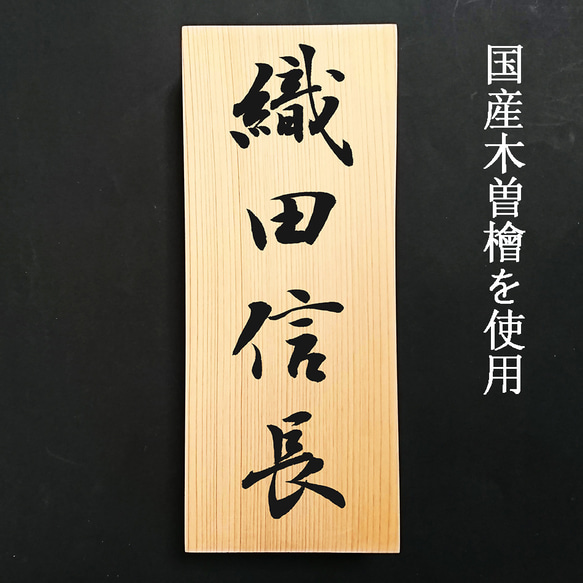 国産木曽檜を使用
織田信長